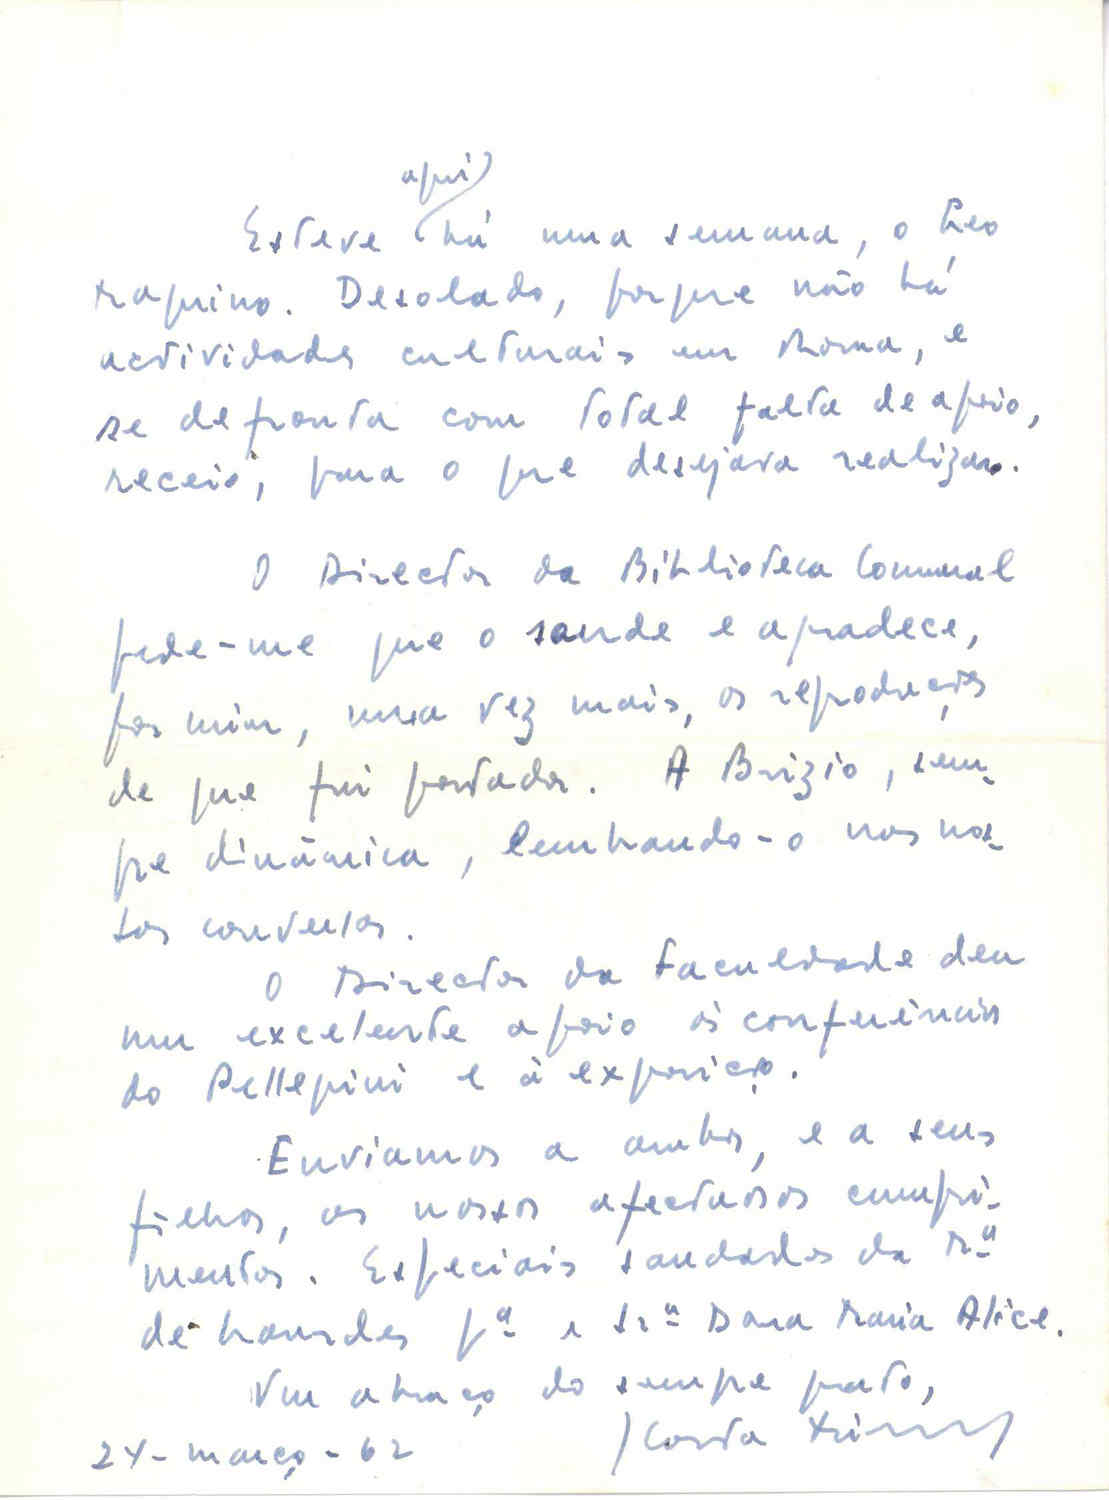 aqui
Esteve há uma semana, o Leo
Magnino. Desolado, porque não há
actividades culturais em Roma, e
se defronta com total falta de apoio,
receio, para o que desejava realizar.
O Director da Biblioteca Comunal
pede-me que o saude e agradece,
por mim, uma vez mais, as reproduções
de que fui portador. A Brizio, sem-
pre dinâmica, lembrando-o nas nos-
sas conversas.
O Director da Faculdade deu
um excelente apoio às conferências
do Pellegrini e à exposição.
Enviamos a ambos, e a seus
filhos, os nossos afectuosos cumpri-
mentos. Especiais saudades da Mª
de Lourdes pª a Srª Dona Maria Alice.
Um abraço do sempre grato,
Costa
março - 62